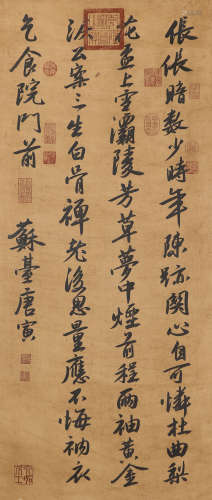 伥伥暗数少时年陈跡関心自可憐杜曲梨
花盃上雪灞陵芳草夢中煙前程兩袖黄金
淚公案三生白骨禪老後思量應不悔衲衣
乞食院門前
蘇臺唐寅